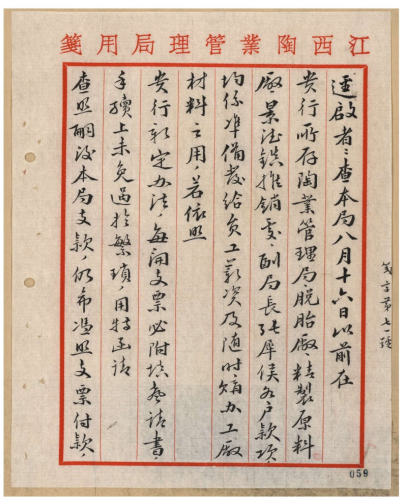 江西陶業管理局用箋
逕啟者：查本局八月十六日以前在
貴行所存陶業管理局、脫胎廠、精製原料
廠、景德鎮推銷處、副局長張犀侯各戶款項，
均係準備發給員工薪资及随时熵办工厰
材料之用，若依照
貴行新定办法，每開支票必附填声請書，
手續上未免過於繁瑣，用特函請
查照嗣後本局支款，仍希憑照支票付款，
箋字第七一號
059